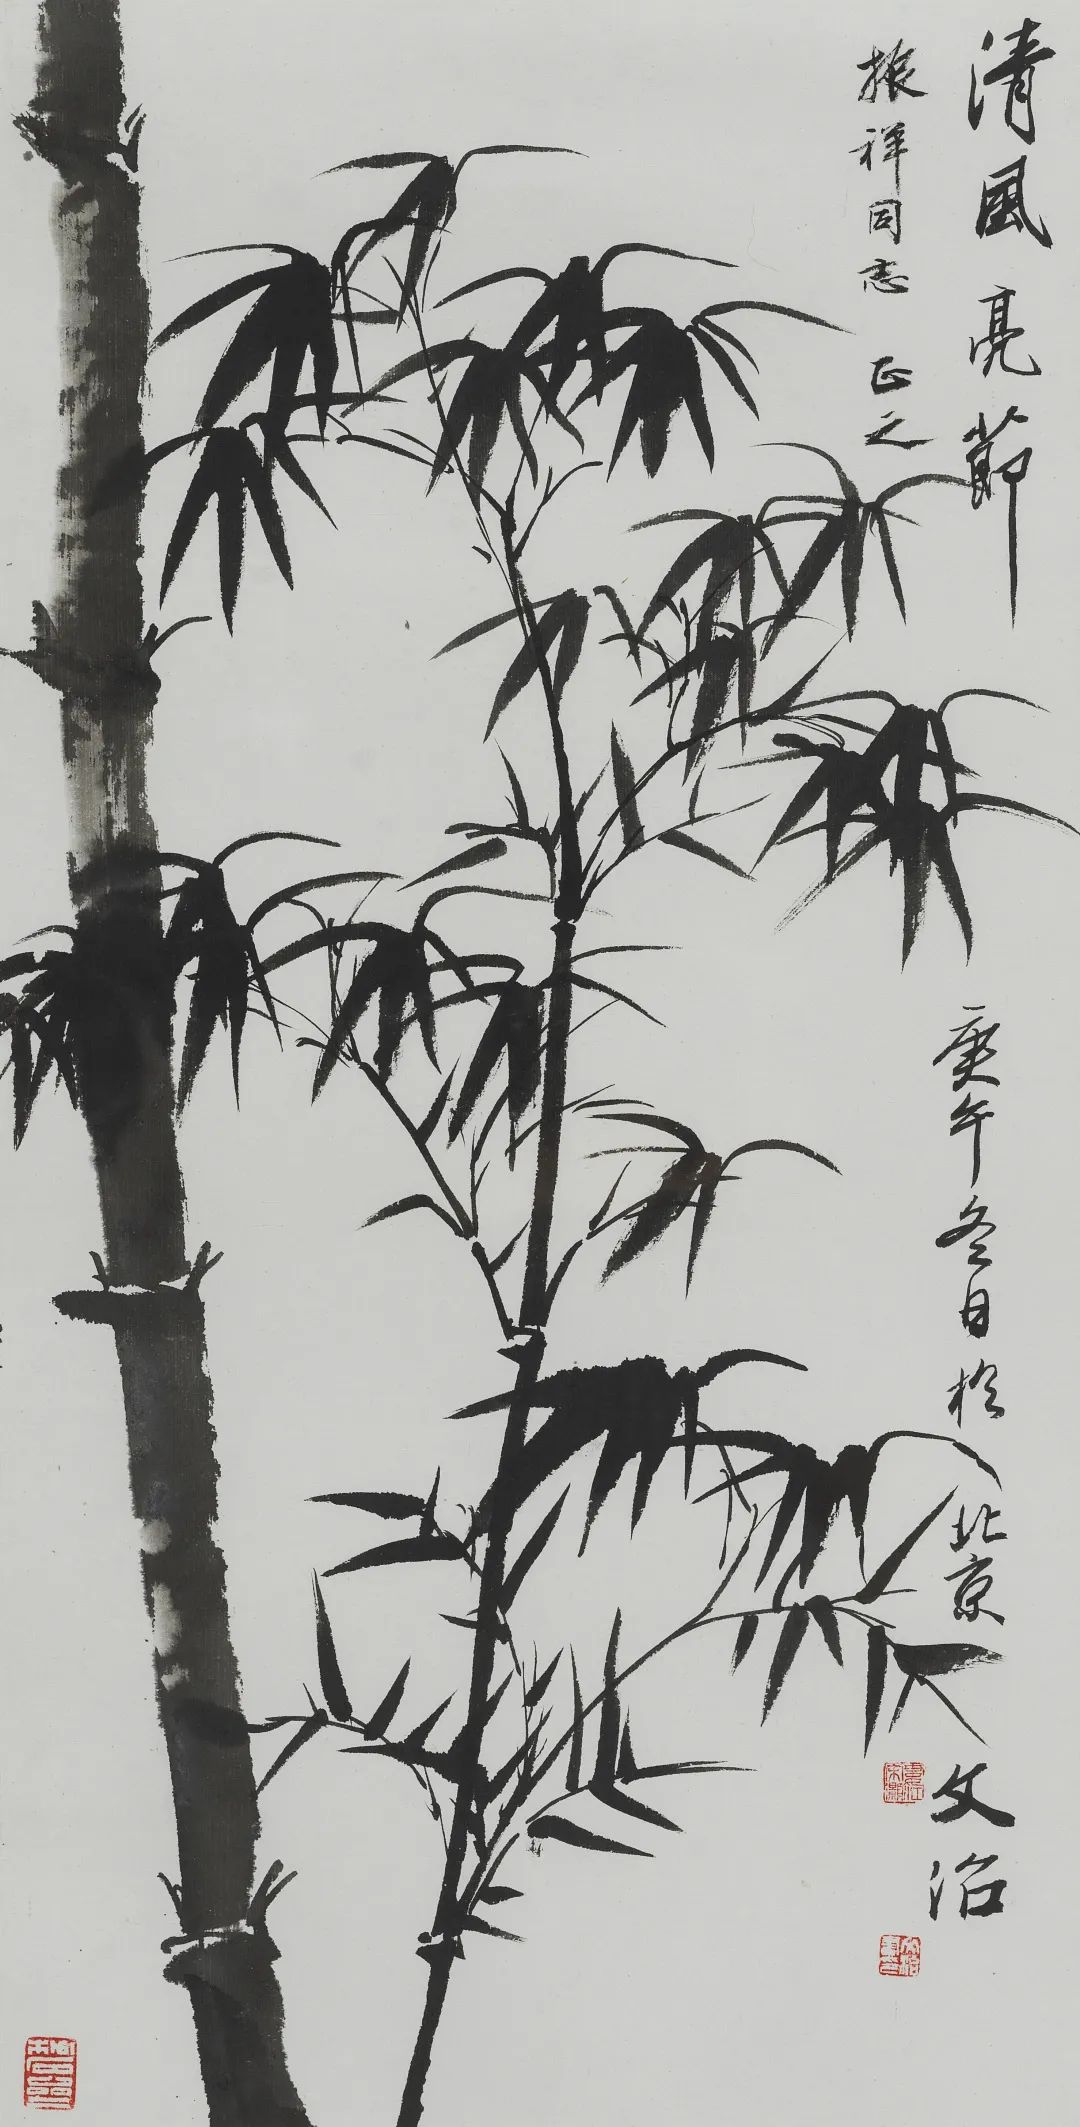 清風亮節
振祥同志 正之
庚午冬日於北京
文治